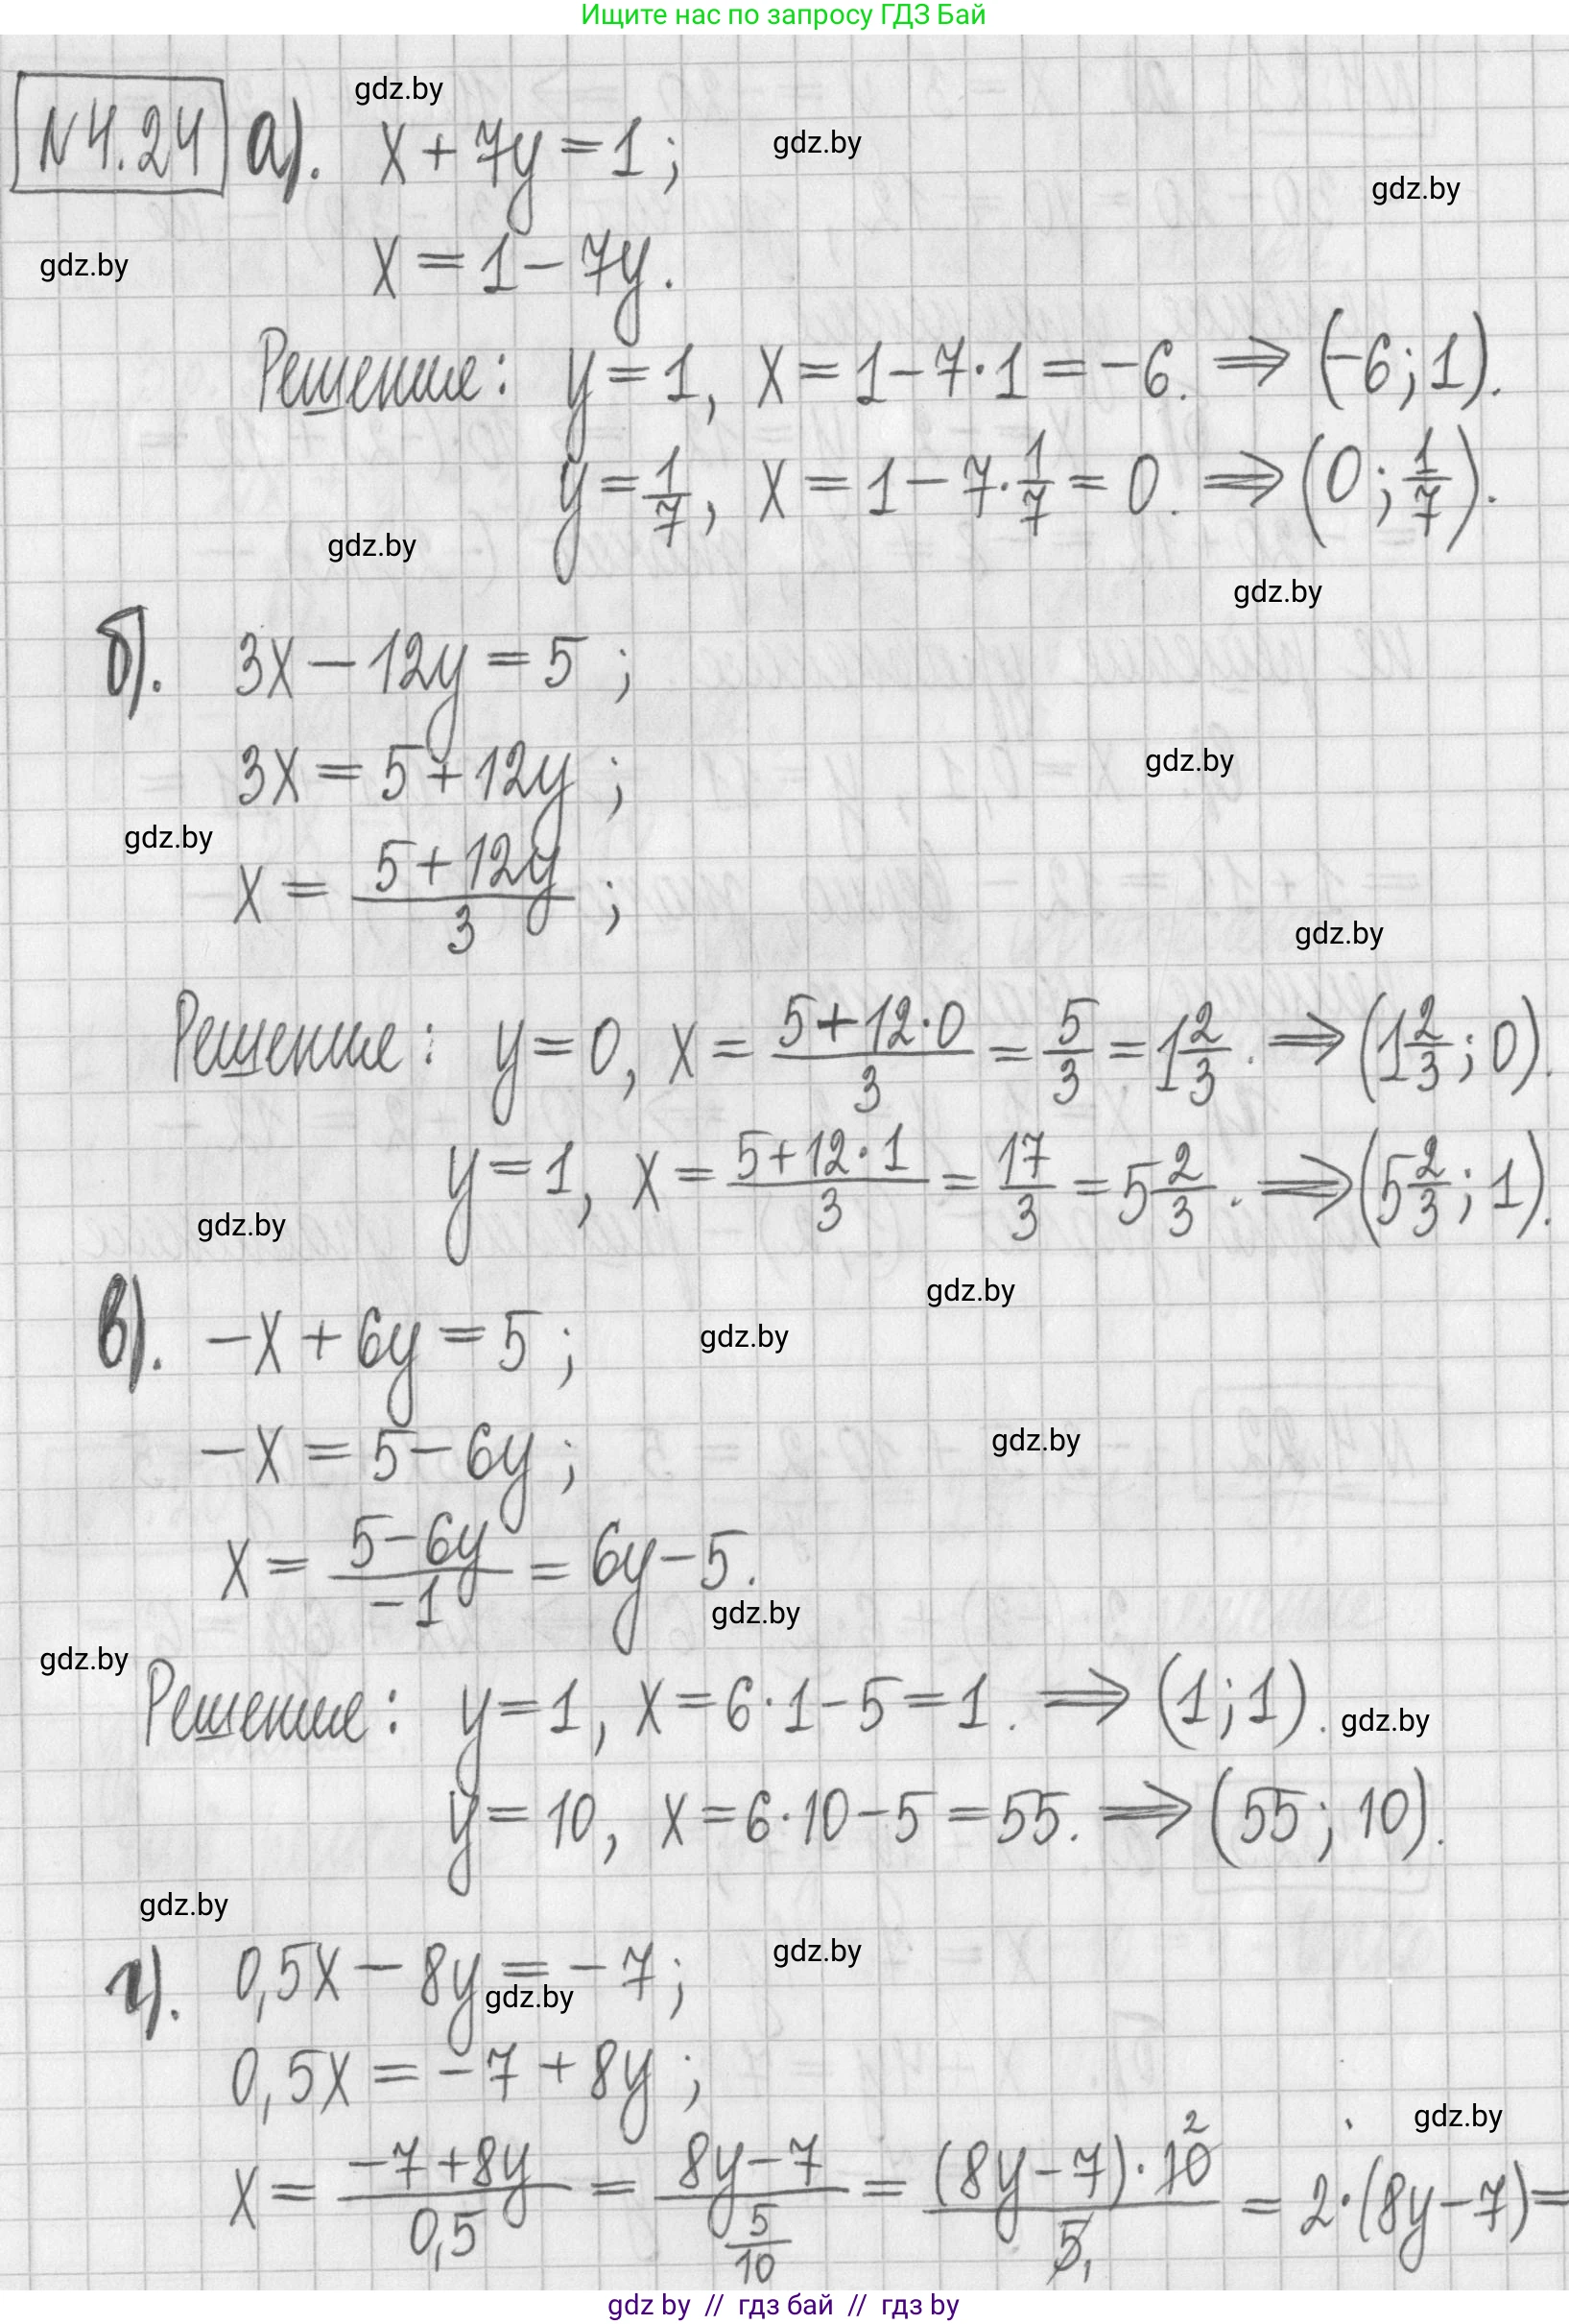 Ищите нас по запросу ГДЗ Бай
gdz.by
N4.24 а). x + 7y = 1 ;
gdz.by
gdz.by
x = 1 - 7y.
gdz.by
Решение: y = 1, x = 1 - 7·1 = -6. ⟹ (-6; 1).
y = 1/7, x = 1 - 7·1/7 = 0. ⟹ (0; 1/7).
gdz.by
gdz.by
б). 3x - 12y = 5 ;
3x = 5 + 12y ;
gdz.by
gdz.by
x = (5 + 12y)/3 ;
gdz.by
Решение: y = 0, x = (5 + 12·0)/3 = 5/3 = 1 2/3. ⟹ (1 2/3; 0).
y = 1, x = (5 + 12·1)/3 = 17/3 = 5 2/3. ⟹ (5 2/3; 1).
gdz.by
gdz.by
в). -x + 6y = 5 ;
gdz.by
-x = 5 - 6y ;
gdz.by
x = (5 - 6y)/-1 = 6y - 5.
gdz.by
gdz.by
Решение: y = 1, x = 6·1 - 5 = 1. ⟹ (1; 1).
gdz.by
y = 10, x = 6·10 - 5 = 55. ⟹ (55; 10).
gdz.by
gdz.by
г). 0,5x - 8y = -7 ;
gdz.by
0,5x = -7 + 8y ;
gdz.by
x = (-7 + 8y)/0,5 = (8y - 7)/(5/10) = ((8y - 7)·10 2)/5 1 = 2·(8y - 7) =
gdz by // гдз бай // гдз by